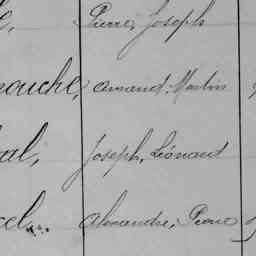 Pierre, Joseph
ouche, Armand-Martin
al, Joseph, Léonard
cel, Alexandre, Pierre